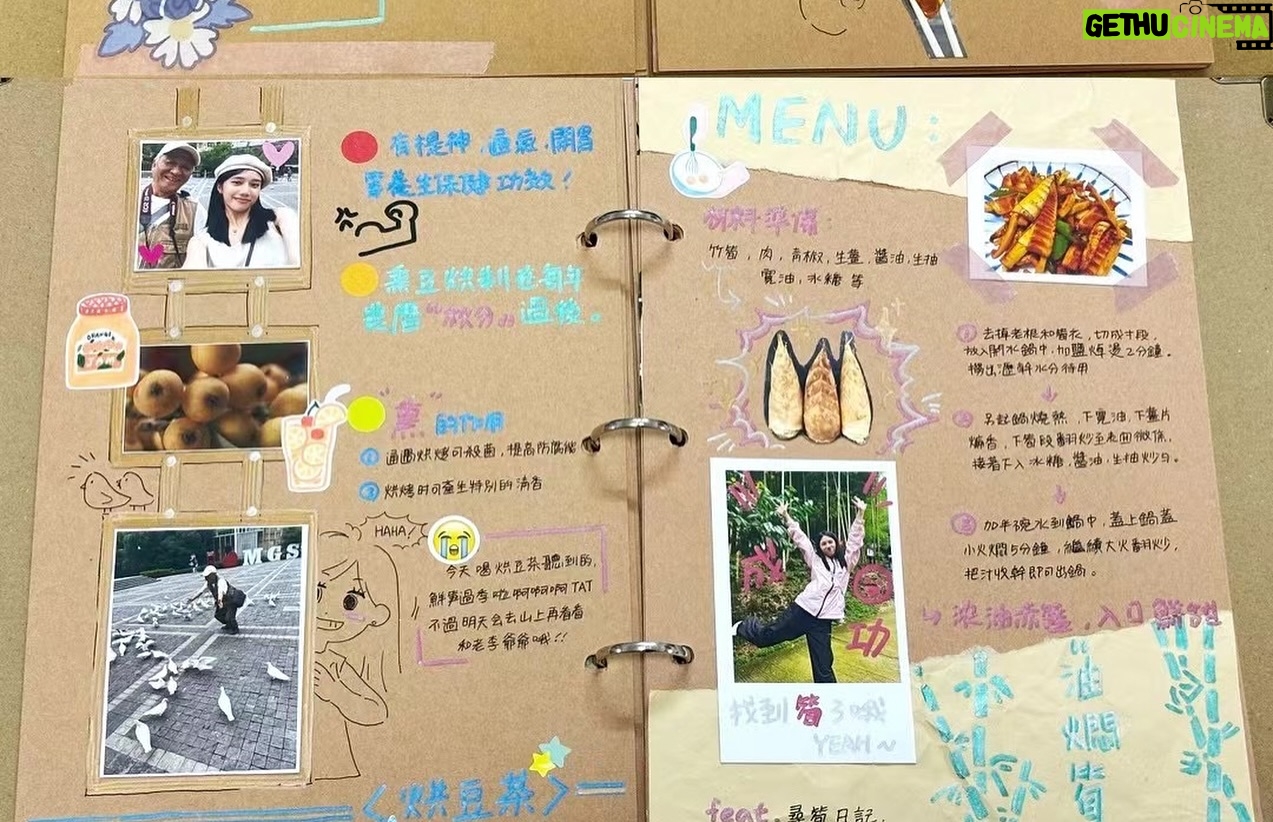 GETHU CINEMA
有提神、通氣、開胃
等養生保健功效!
熏豆烘制在每年
農歷“秋分”過後。
“熏”的作用
① 通過烘烤可殺菌,提高防腐能
② 烘烤时可產生特別的清香
MGS
HAHA!
今天喝烘豆茶聽到的,
鮮笋過季啦啊啊啊啊TAT
不過明天会去山上再看看
和老李爺爺哦!!
<烘豆茶>
MENU:
材料準備:
竹筍,肉,青椒,生薑,醬油,生抽
寬油,冰糖 等
① 去掉老根和筍衣,切成寸段,
放入開水鍋中,加鹽焯燙2分鐘。
撈出瀝幹水分待用
② 另起鍋燒熱,下寬油,下薑片
煸香,下筍段翻炒至表面微焦,
接著下入冰糖,醬油,生抽炒勻。
③ 加半碗水到鍋中,蓋上鍋蓋
小火燜5分鐘,繼續大火翻炒,
把汁收幹即可出鍋。
浓油赤醬,入口鮮甜
成功
找到筍了哦
YEAH~
油燜筍
feat.尋筍日記.